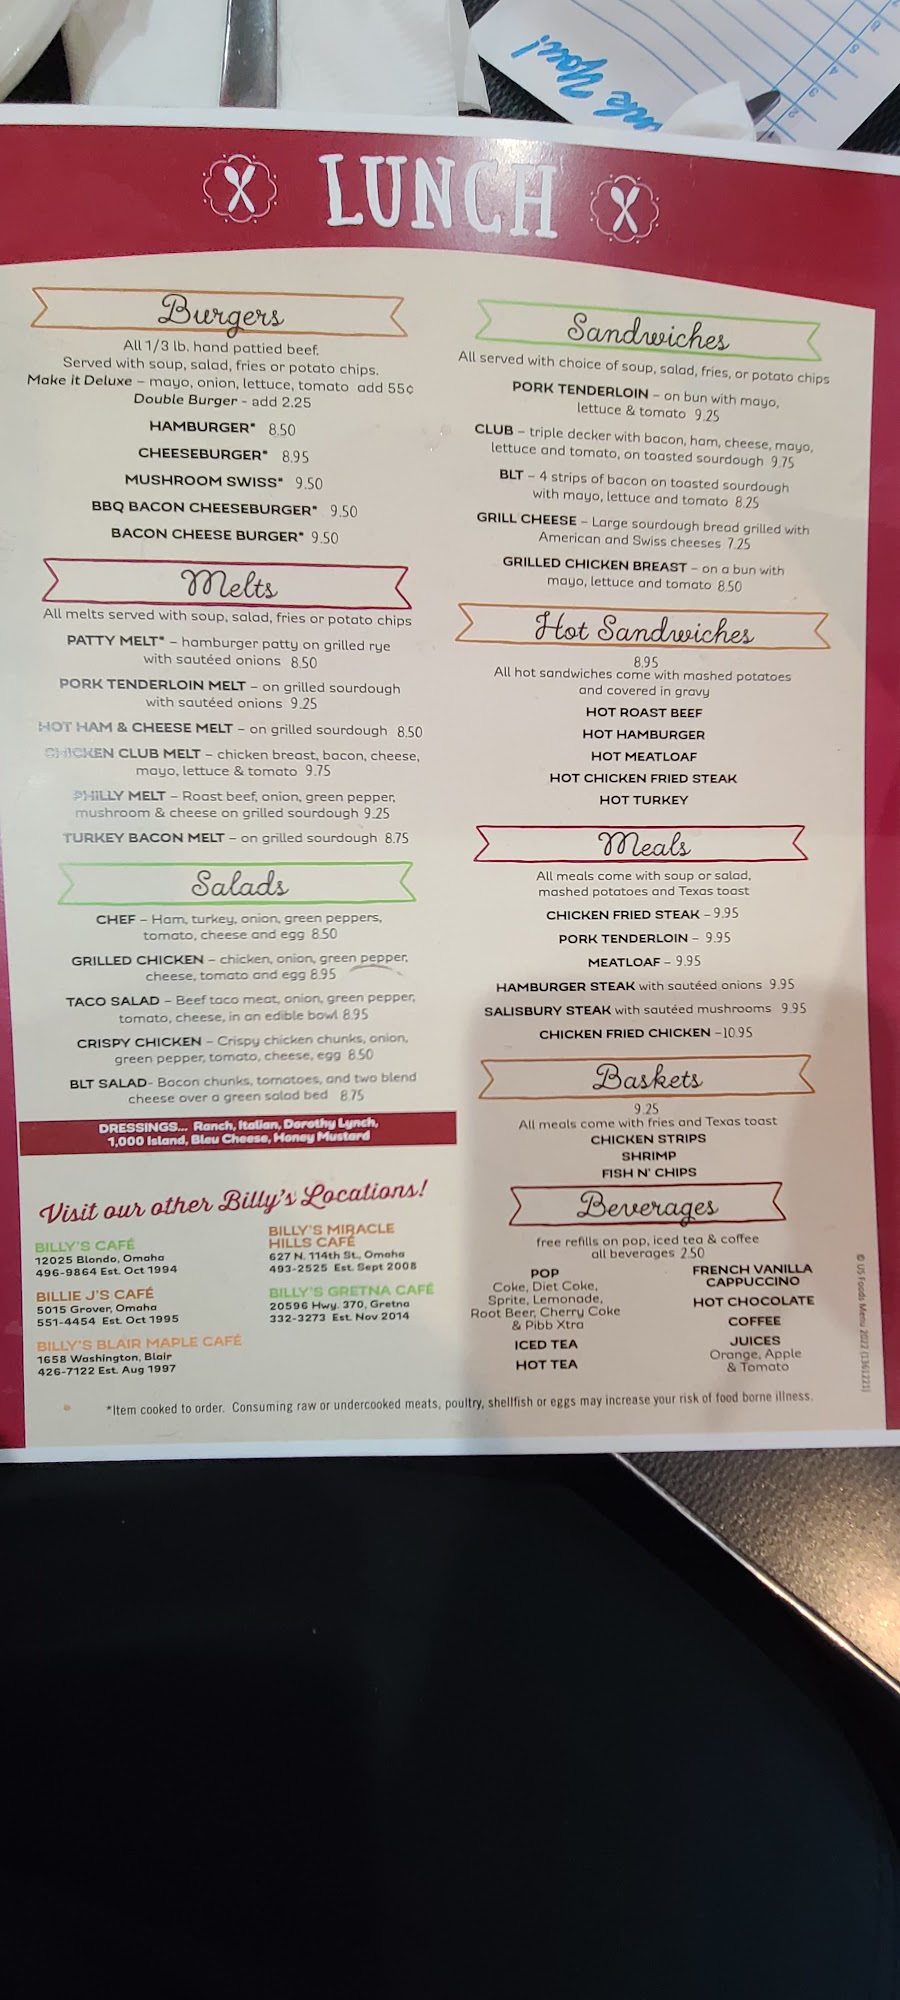 Thank You!
LUNCH
Burgers
All 1/3 lb. hand pattied beef.
Served with soup, salad, fries or potato chips.
Make it Deluxe – mayo, onion, lettuce, tomato add 55¢
Double Burger - add 2.25
HAMBURGER* 8.50
CHEESEBURGER* 8.95
MUSHROOM SWISS* 9.50
BBQ BACON CHEESEBURGER* 9.50
BACON CHEESE BURGER* 9.50
Melts
All melts served with soup, salad, fries or potato chips
PATTY MELT* – hamburger patty on grilled rye
with sautéed onions 8.50
PORK TENDERLOIN MELT – on grilled sourdough
with sautéed onions 9.25
HOT HAM & CHEESE MELT – on grilled sourdough 8.50
CHICKEN CLUB MELT – chicken breast, bacon, cheese,
mayo, lettuce & tomato 9.75
PHILLY MELT – Roast beef, onion, green pepper,
mushroom & cheese on grilled sourdough 9.25
TURKEY BACON MELT – on grilled sourdough 8.75
Salads
CHEF – Ham, turkey, onion, green peppers,
tomato, cheese and egg 8.50
GRILLED CHICKEN – chicken, onion, green pepper,
cheese, tomato and egg 8.95
TACO SALAD – Beef taco meat, onion, green pepper,
tomato, cheese, in an edible bowl 8.95
CRISPY CHICKEN – Crispy chicken chunks, onion,
green pepper, tomato, cheese, egg 8.50
BLT SALAD- Bacon chunks, tomatoes, and two blend
cheese over a green salad bed 8.75
DRESSINGS... Ranch, Italian, Dorothy Lynch,
1,000 Island, Bleu Cheese, Honey Mustard
Visit our other Billy's Locations!
BILLY'S CAFÉ
12025 Blondo, Omaha
496-9864 Est. Oct 1994
BILLIE J'S CAFÉ
5015 Grover, Omaha
551-4454 Est. Oct 1995
BILLY'S BLAIR MAPLE CAFÉ
1658 Washington, Blair
426-7122 Est. Aug 1997
BILLY'S MIRACLE
HILLS CAFÉ
627 N. 114th St., Omaha
493-2525 Est. Sept 2008
BILLY'S GRETNA CAFÉ
20596 Hwy. 370, Gretna
332-3273 Est. Nov 2014
Sandwiches
All served with choice of soup, salad, fries, or potato chips
PORK TENDERLOIN – on bun with mayo,
lettuce & tomato 9.25
CLUB – triple decker with bacon, ham, cheese, mayo,
lettuce and tomato, on toasted sourdough 9.75
BLT – 4 strips of bacon on toasted sourdough
with mayo, lettuce and tomato 8.25
GRILL CHEESE – Large sourdough bread grilled with
American and Swiss cheeses 7.25
GRILLED CHICKEN BREAST – on a bun with
mayo, lettuce and tomato 8.50
Hot Sandwiches
8.95
All hot sandwiches come with mashed potatoes
and covered in gravy
HOT ROAST BEEF
HOT HAMBURGER
HOT MEATLOAF
HOT CHICKEN FRIED STEAK
HOT TURKEY
Meals
All meals come with soup or salad,
mashed potatoes and Texas toast
CHICKEN FRIED STEAK – 9.95
PORK TENDERLOIN – 9.95
MEATLOAF – 9.95
HAMBURGER STEAK with sautéed onions 9.95
SALISBURY STEAK with sautéed mushrooms 9.95
CHICKEN FRIED CHICKEN –10.95
Baskets
9.25
All meals come with fries and Texas toast
CHICKEN STRIPS
SHRIMP
FISH N' CHIPS
Beverages
free refills on pop, iced tea & coffee
all beverages 2.50
POP
Coke, Diet Coke,
Sprite, Lemonade,
Root Beer, Cherry Coke
& Pibb Xtra
ICED TEA
HOT TEA
FRENCH VANILLA
CAPPUCCINO
HOT CHOCOLATE
COFFEE
JUICES
Orange, Apple
& Tomato
© US Foods Menu 2022 (1361221)
*Item cooked to order. Consuming raw or undercooked meats, poultry, shellfish or eggs may increase your risk of food borne illness.